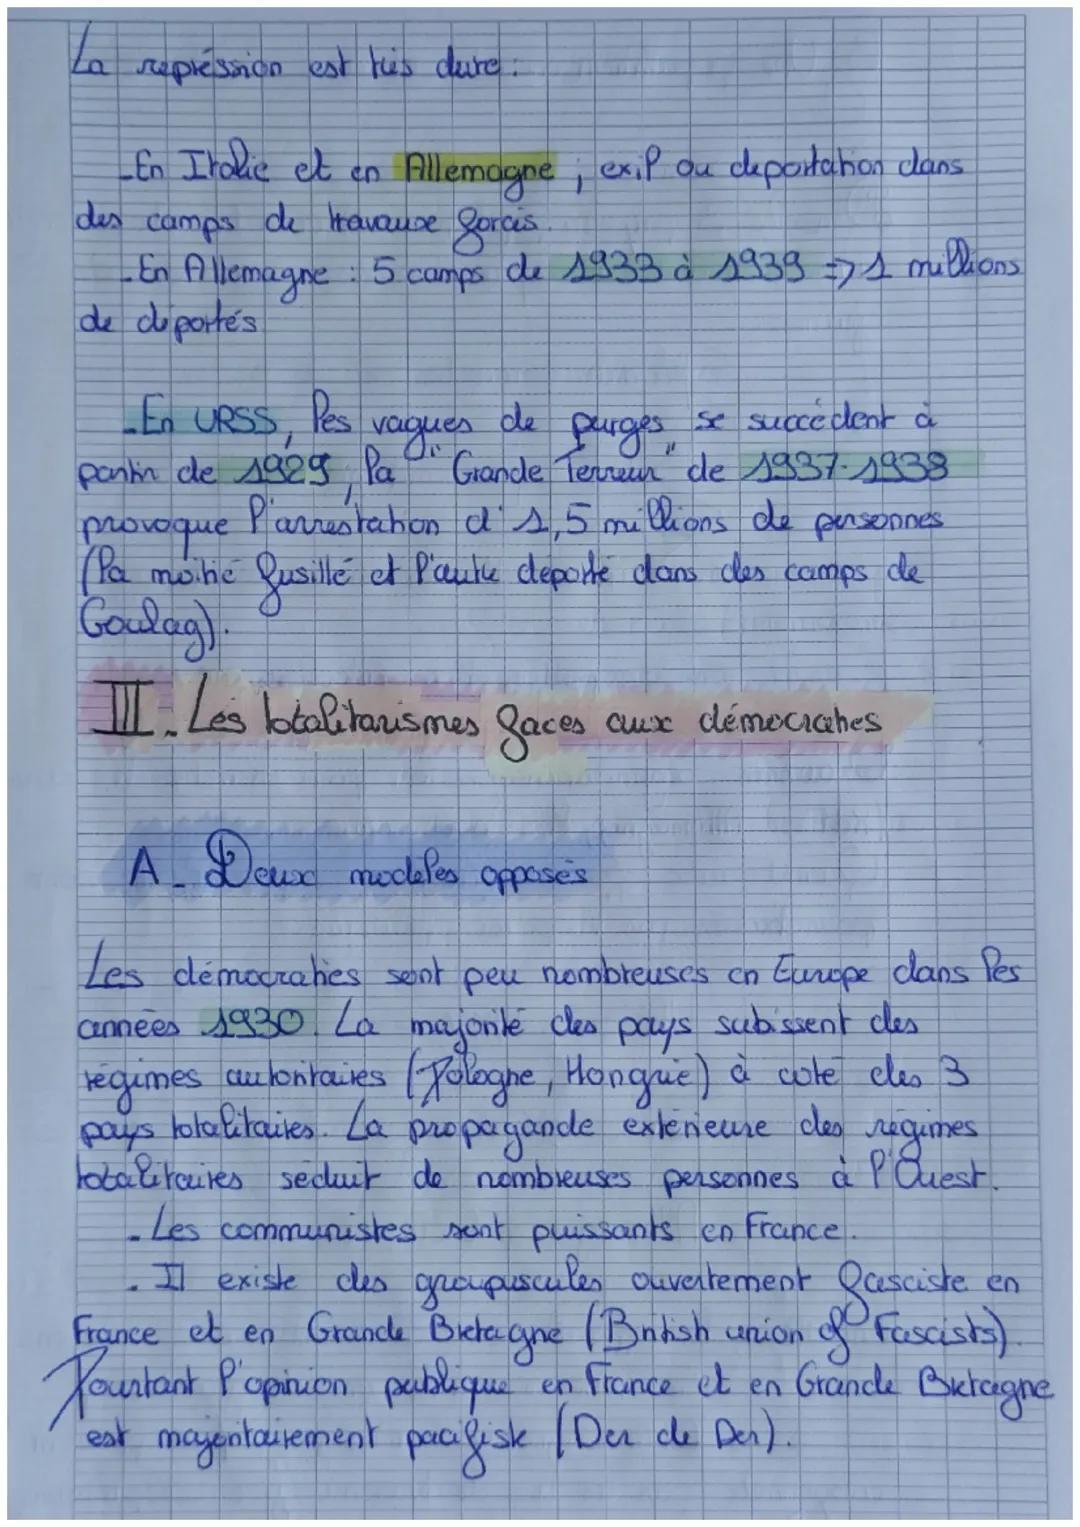 La représsion est très dure :
- En Italie et en Allemagne ; exil ou deportation dans
des camps de travause forcés.
- En Allemagne : 5 camps de 1933 à 1939 => 1 millions
de déportés
- En URSS, les vagues de purges se succédent à
partir de 1929, la "Grande Terreur" de 1937-1938
provoque l'arrestation d'1,5 millions de personnes
(la moitié fusillé et l'autre déporté dans des camps de
Goulag).
III. Les totalitarismes faces aux démocraties
A - Deux modeles opposés
Les démocraties sont peu nombreuses en Europe dans les
années 1930. La majorité des pays subissent des
régimes autoritaires (Pologne, Hongrie) à coté des 3
pays totalitaires. La propagande extérieure des régimes
totalitaires séduit de nombreuses personnes à l'Ouest.
- Les communistes sont puissants en France.
- Il existe des groupuscules ouvertement fasciste en
France et en Grande Bretagne (British union of Fascists).
Pourtant l'opinion publique en France et en Grande Bretagne
est majoritairement pacifiste (Der de Der).